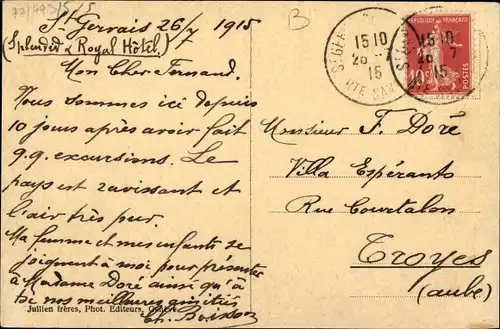 St Gervais 26/7 1915
(Splendid & Royal Hôtel.)
Mon Cher Fernand.
Nous sommes ici depuis
10 jours après avoir fait
q.q. excursions. Le
pays est ravissant et
l'air très pur.
Ma femme et mes enfants se
joignent à moi pour présenter
à Madame Doré ainsi qu'à
toi nos meilleures amitiés
Ch. Boisson
Jullien frères, Phot. Editeurs, Genève
B
15 10
26 - 7
15
HTE SAV
REPUBLIQUE FRANÇAISE
10c
POSTES
15 10
15
Monsieur F. Doré
Villa Espéranto
Rue Courtalon
Troyes
(aube)